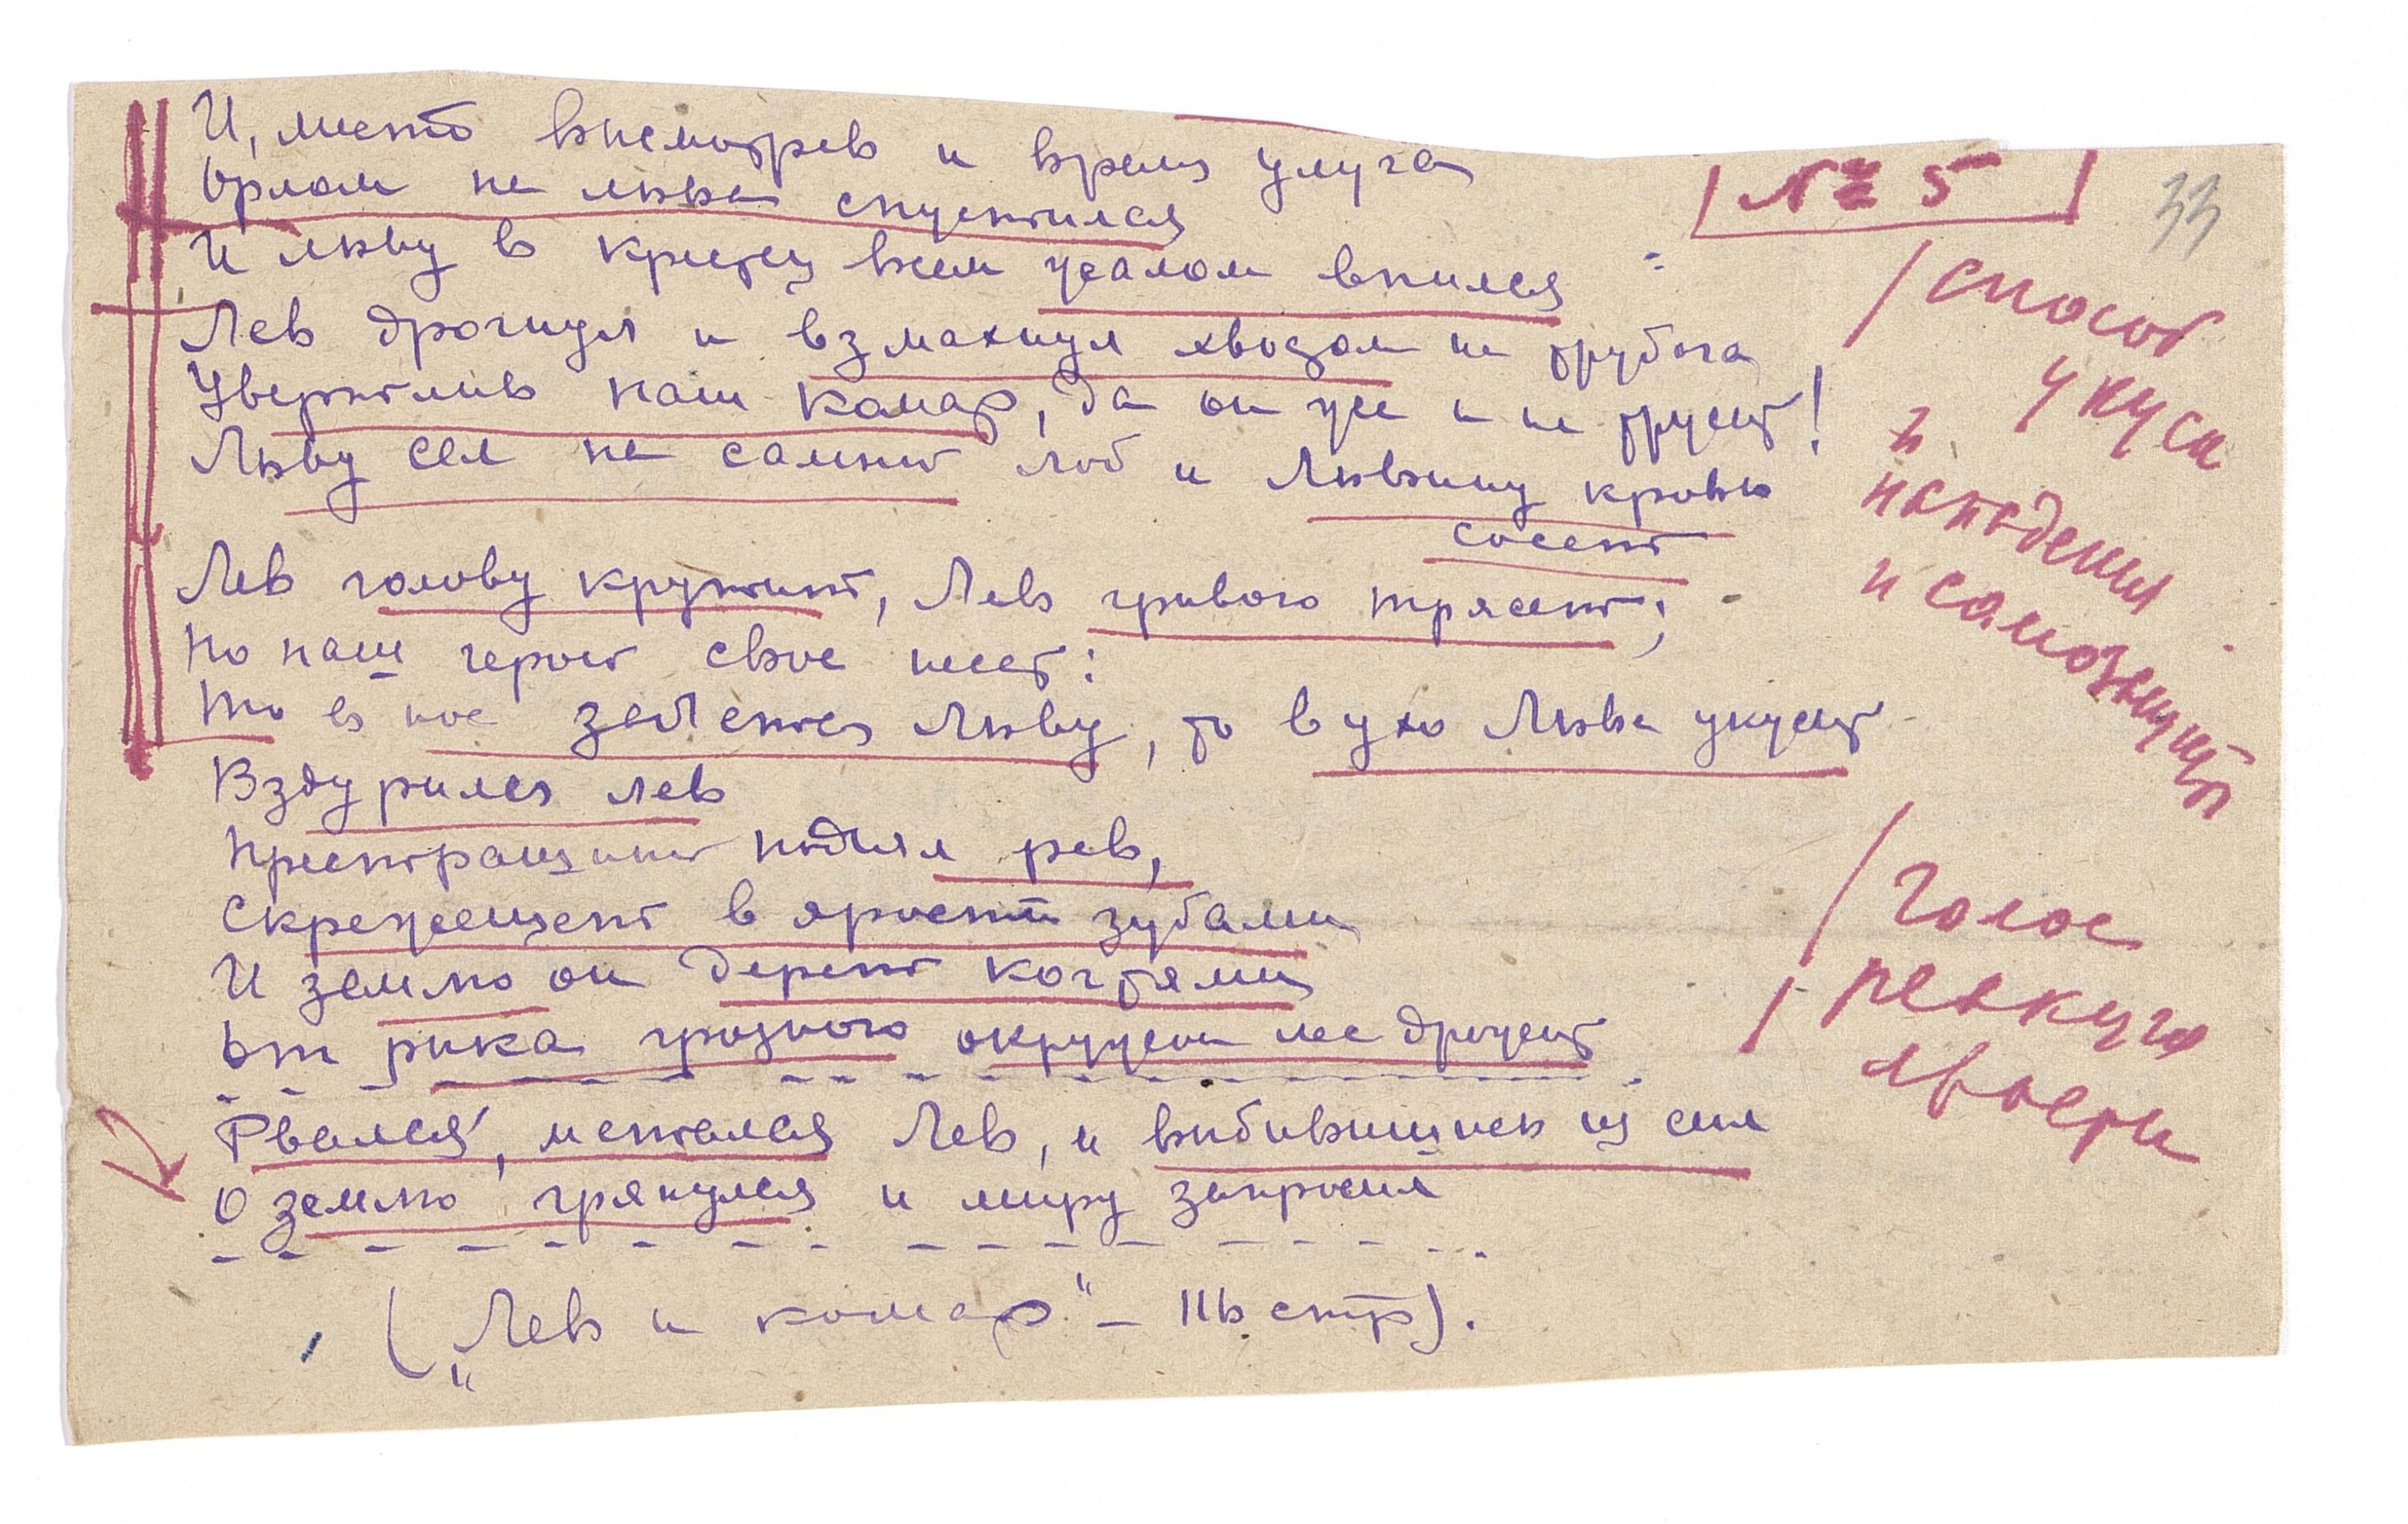 И, место высмотрев и время улуча
Орлом на льва спустился
И льву в крестец всем жалом впился
Лев дрогнул и взмахнул хвостом на трубача
Увертлив наш комар, да он уже и не трусит!
Льву сел на самый лоб и Львину кровь
сосет
Лев голову крутит, Лев гривою трясет;
Но наш герой свое несет:
То в нос забьется Льву, то в ухо Льва укусит
Вздурился лев
Престрашный поднял рев,
Скрежещет в ярости зубами
И землю он дерет когтями
От рыка грозного окружный лес дрожит
Рвался, метался Лев, и выбившись из сил
О землю грянулся и миру запросил
(„Лев и комар" – 116 стр).
№ 5
33
способ
укуса
и
нападения
и самозащиты
Голос
ревущего
ярости